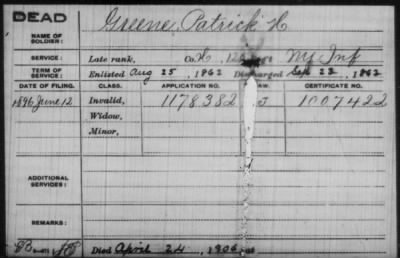 DEAD
Greene, Patrick H
NAME OF SOLDIER:
SERVICE: Late rank, Co. H, NY Inf
TERM OF SERVICE: Enlisted Aug 25, 1862 Discharged Sep 22, 1862
DATE OF FILING. CLASS. APPLICATION NO. LAW. CERTIFICATE NO.
1896 June 12 Invalid, 1178382 J 1007422
Widow,
Minor,
ADDITIONAL SERVICES:
REMARKS:
Died April 24, 1906, at